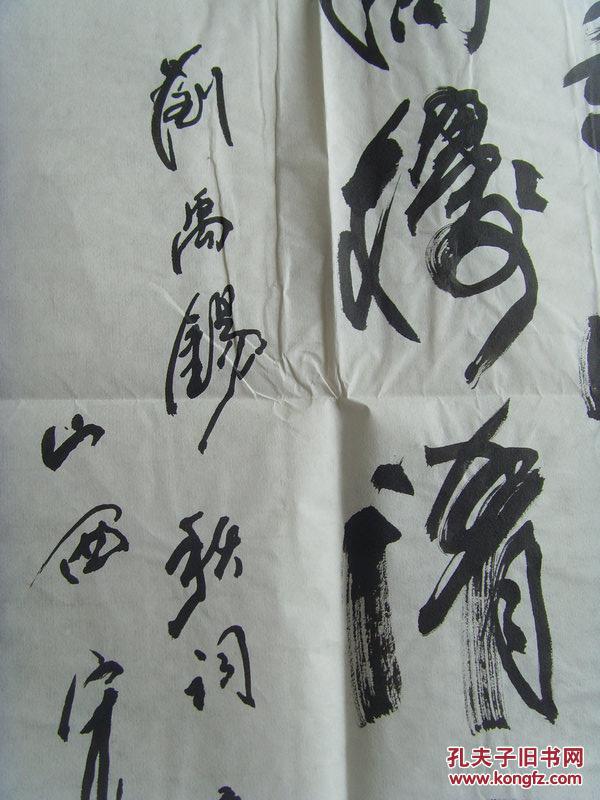 樓清
劉禹錫秋詞
山西宋
孔夫子旧书网
www.kongfz.com